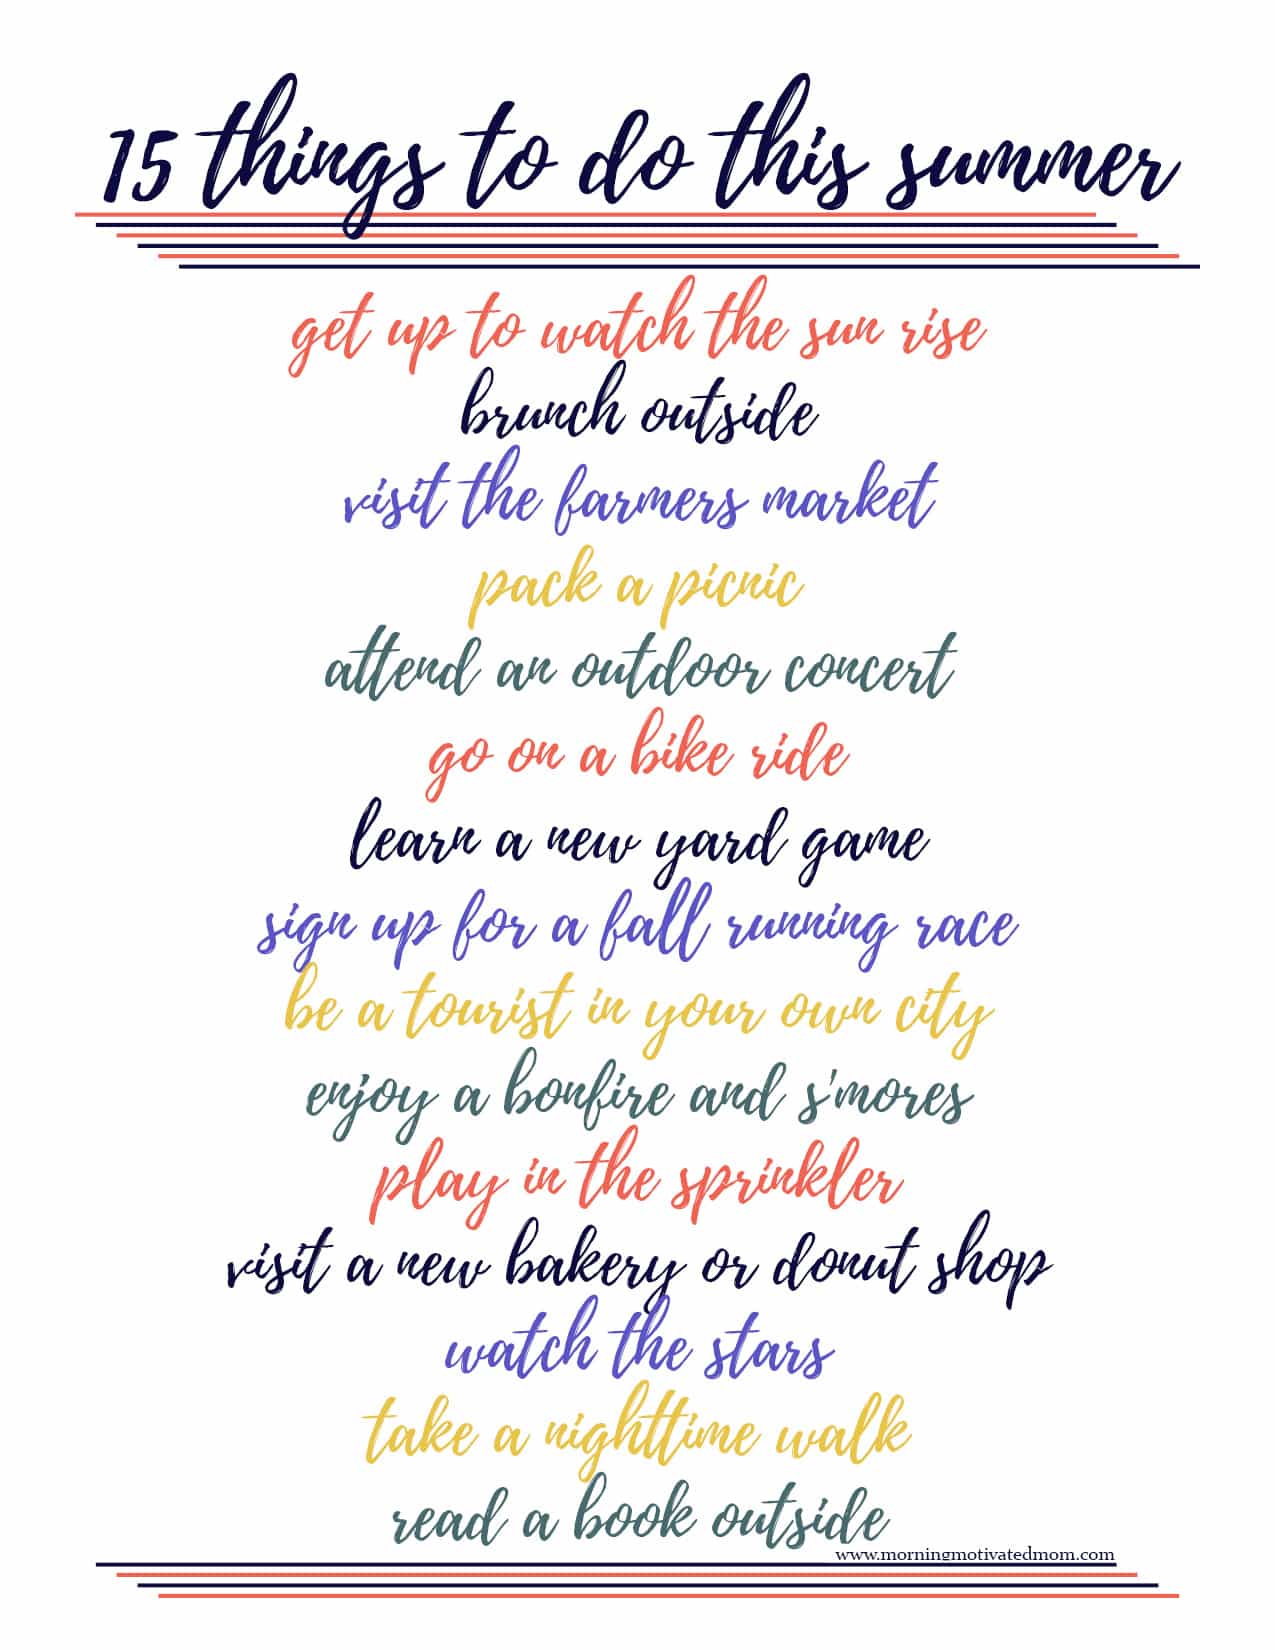 15 things to do this summer
get up to watch the sun rise
brunch outside
visit the farmers market
pack a picnic
attend an outdoor concert
go on a bike ride
learn a new yard game
sign up for a fall running race
be a tourist in your own city
enjoy a bonfire and s'mores
play in the sprinkler
visit a new bakery or donut shop
watch the stars
take a nighttime walk
read a book outside
www.morningmotivatedmom.com